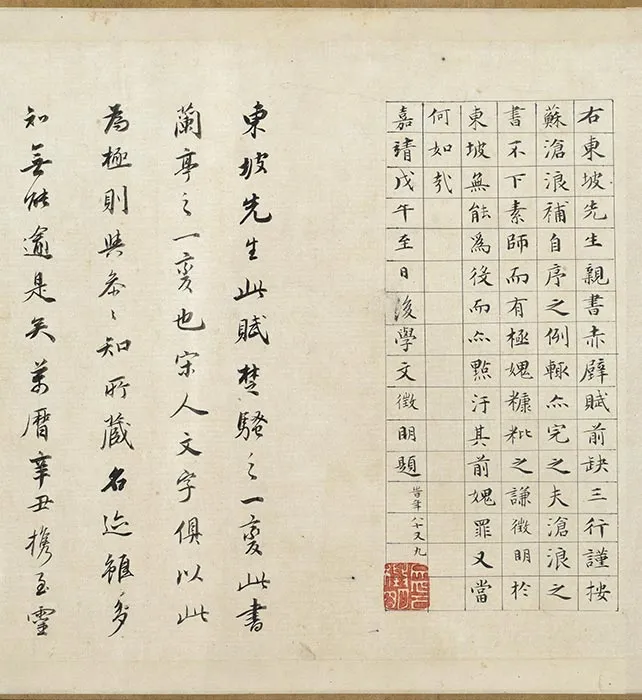 右東坡先生親書赤壁賦前缺三行謹按
蘇滄浪補自序之例輙亦完之夫滄浪之
書不下素師而有極媿糠粃之謙徵明於
東坡無能爲後而亦點汙其前媿罪又當
何如哉
嘉靖戊午至日後學文徵明題 旹年八十又九
東坡先生此賦楚騷之一變此書
蘭亭之一變也宋人文字俱以此
為極則與參〻知所藏名迹雖多
知無能逾是矣萬曆辛丑攜至靈